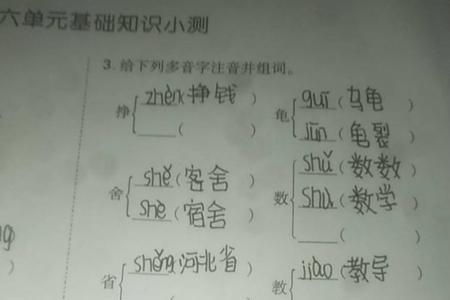 六单元基础知识小测
3. 给下列多音字注音并组词。
挣 zhèn(挣钱) 龟 guī(乌龟)
( ) jūn(龟裂)
舍 shě(客舍) 数 shǔ(数数)
shè(宿舍) shù(数学)
( )
省 shěng(河北省) 教 jiào(教导)